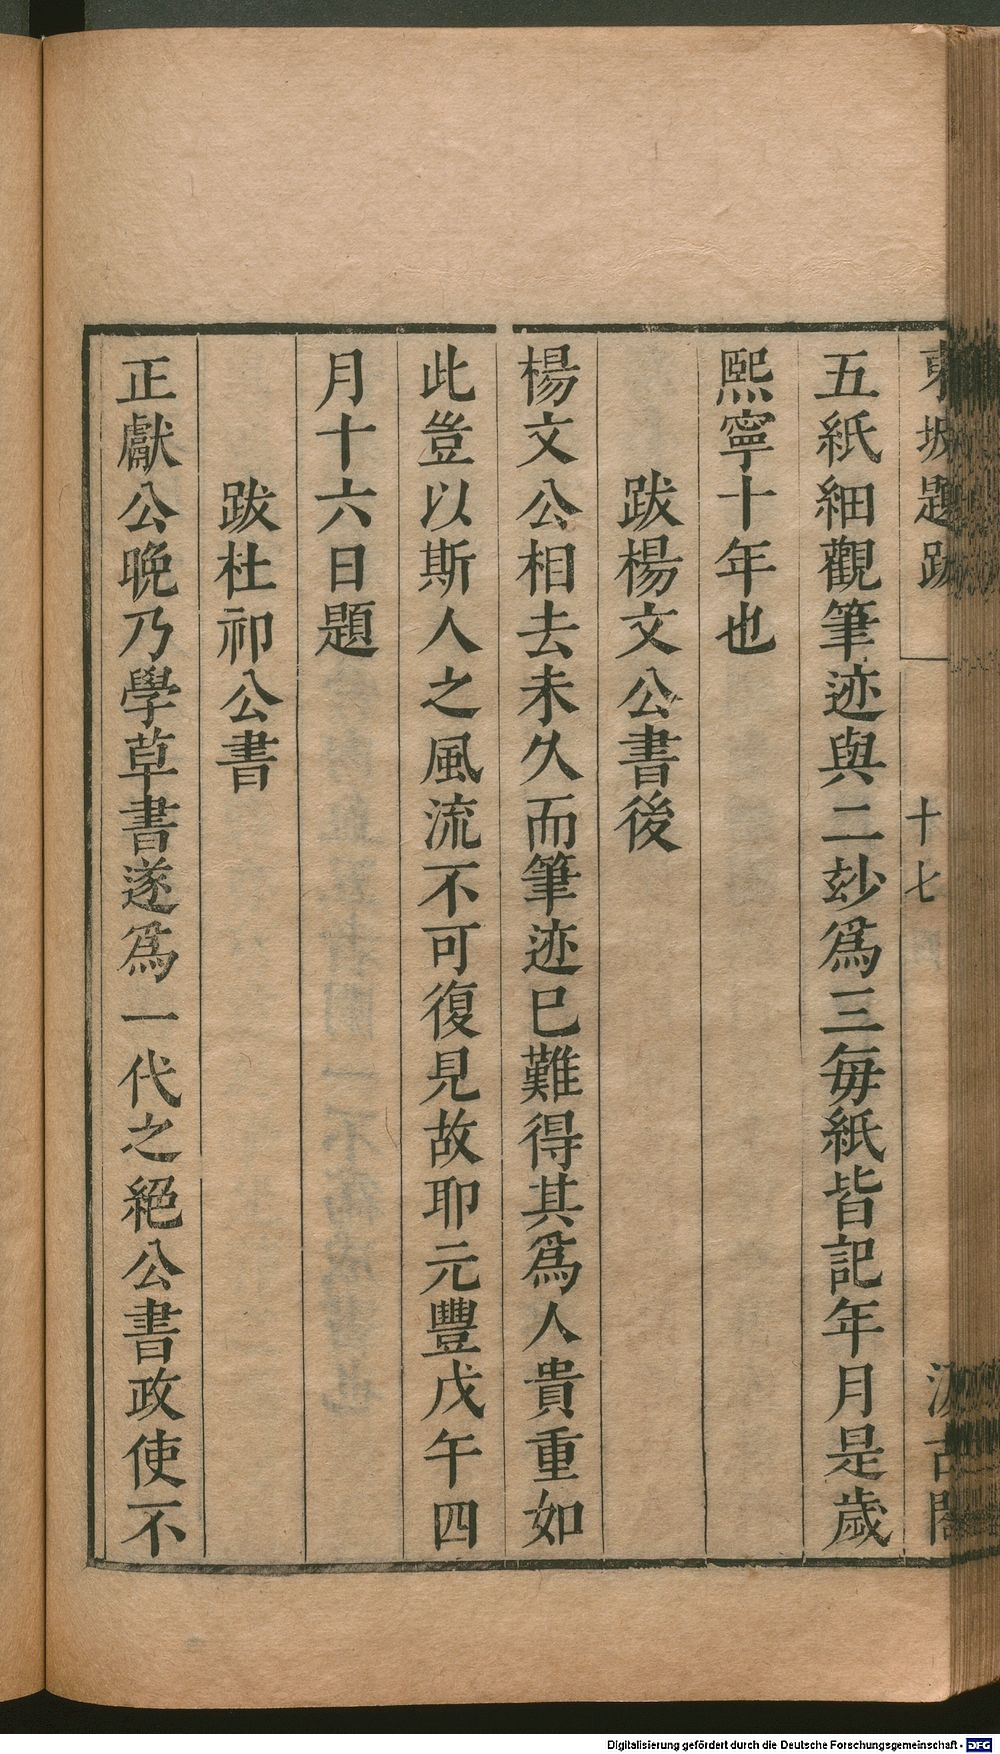 東坡題跋 十七 汲古閣
五紙細觀筆迹與二玅爲三每紙皆記年月是歲
熙寧十年也
跋楊文公書後
楊文公相去未久而筆迹已難得其爲人貴重如
此豈以斯人之風流不可復見故耶元豐戊午四
月十六日題
跋杜祁公書
正獻公晚乃學草書遂爲一代之絕公書政使不
Digitalisierung gefördert durch die Deutsche Forschungsgemeinschaft - DFG